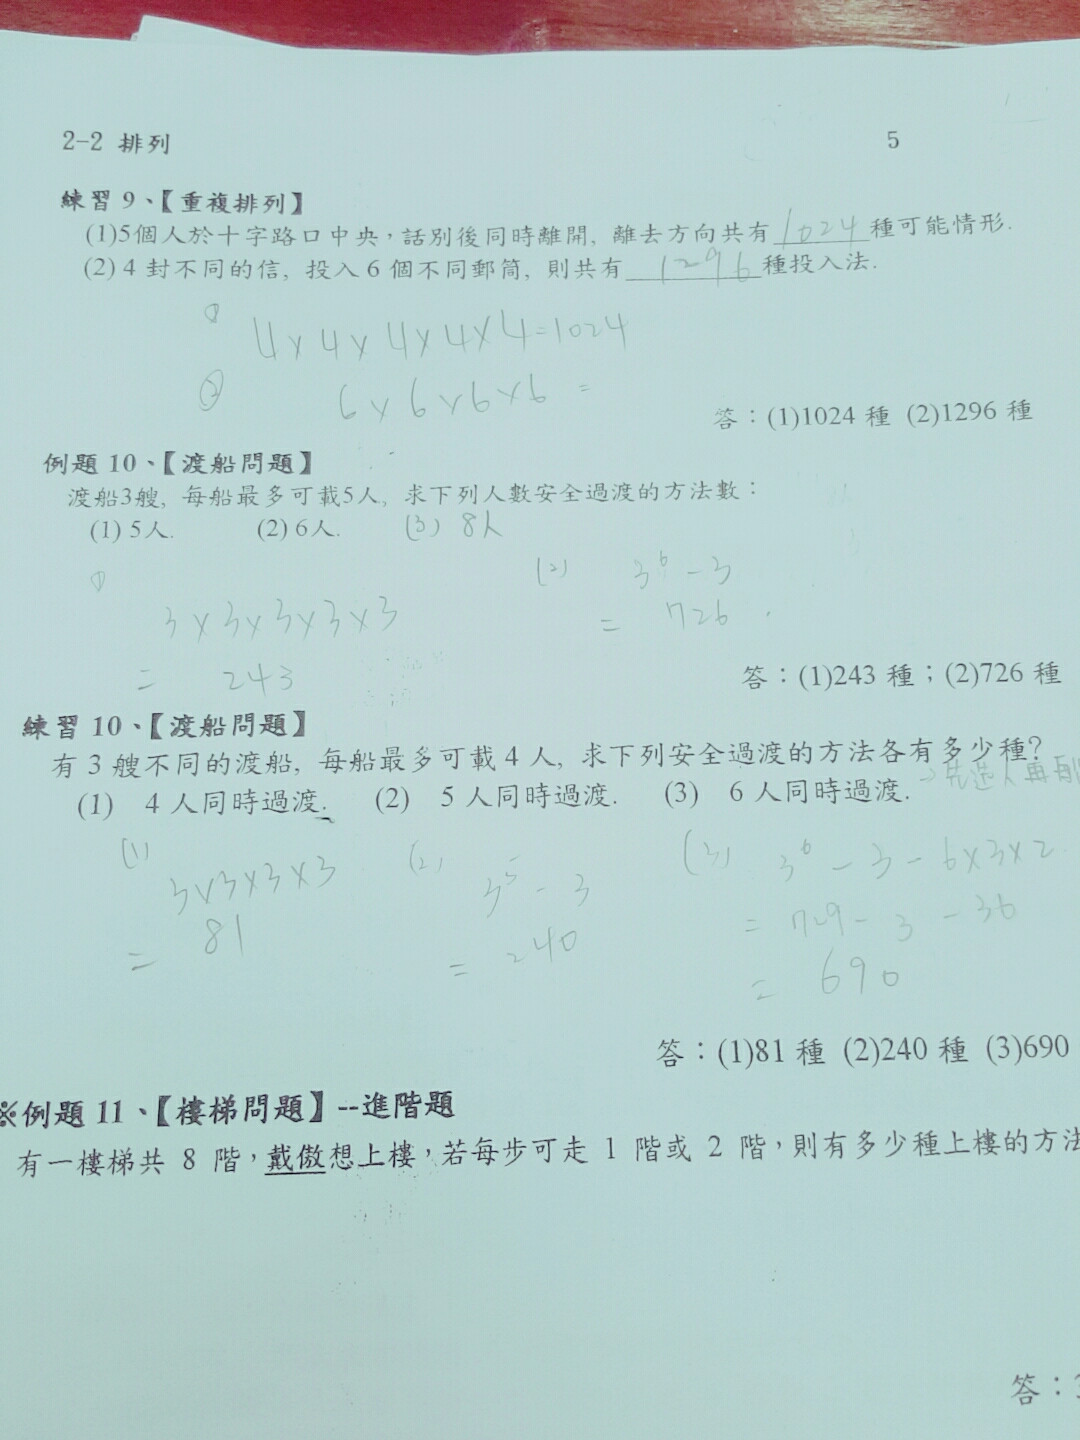 2-2 排列 5
練習 9、【重複排列】
(1)5個人於十字路口中央，話別後同時離開, 離去方向共有 1024 種可能情形.
(2) 4 封不同的信, 投入 6 個不同郵筒, 則共有 1296 種投入法.
①
4×4×4×4×4=1024
② 6×6×6×6 =
答：(1)1024 種 (2)1296 種
例題 10、【渡船問題】
渡船3艘, 每船最多可載5人, 求下列人數安全過渡的方法數：
(1) 5人. (2) 6人. (3) 8人
① (2) 3⁶ - 3
3×3×3×3×3 = 726
= 243
答：(1)243 種；(2)726 種
練習 10、【渡船問題】
有 3 艘不同的渡船, 每船最多可載 4 人, 求下列安全過渡的方法各有多少種?
(1) 4 人同時過渡. (2) 5 人同時過渡. (3) 6 人同時過渡. 先選人再
(1) (2) (3) 3⁶ - 3 - 6×3×2
3×3×3×3 3⁵ - 3 = 729 - 3 - 36
= 81 = 240 = 690
答：(1)81 種 (2)240 種 (3)690
※例題 11、【樓梯問題】--進階題
有一樓梯共 8 階，戴傲想上樓，若每步可走 1 階或 2 階，則有多少種上樓的方法
答：3